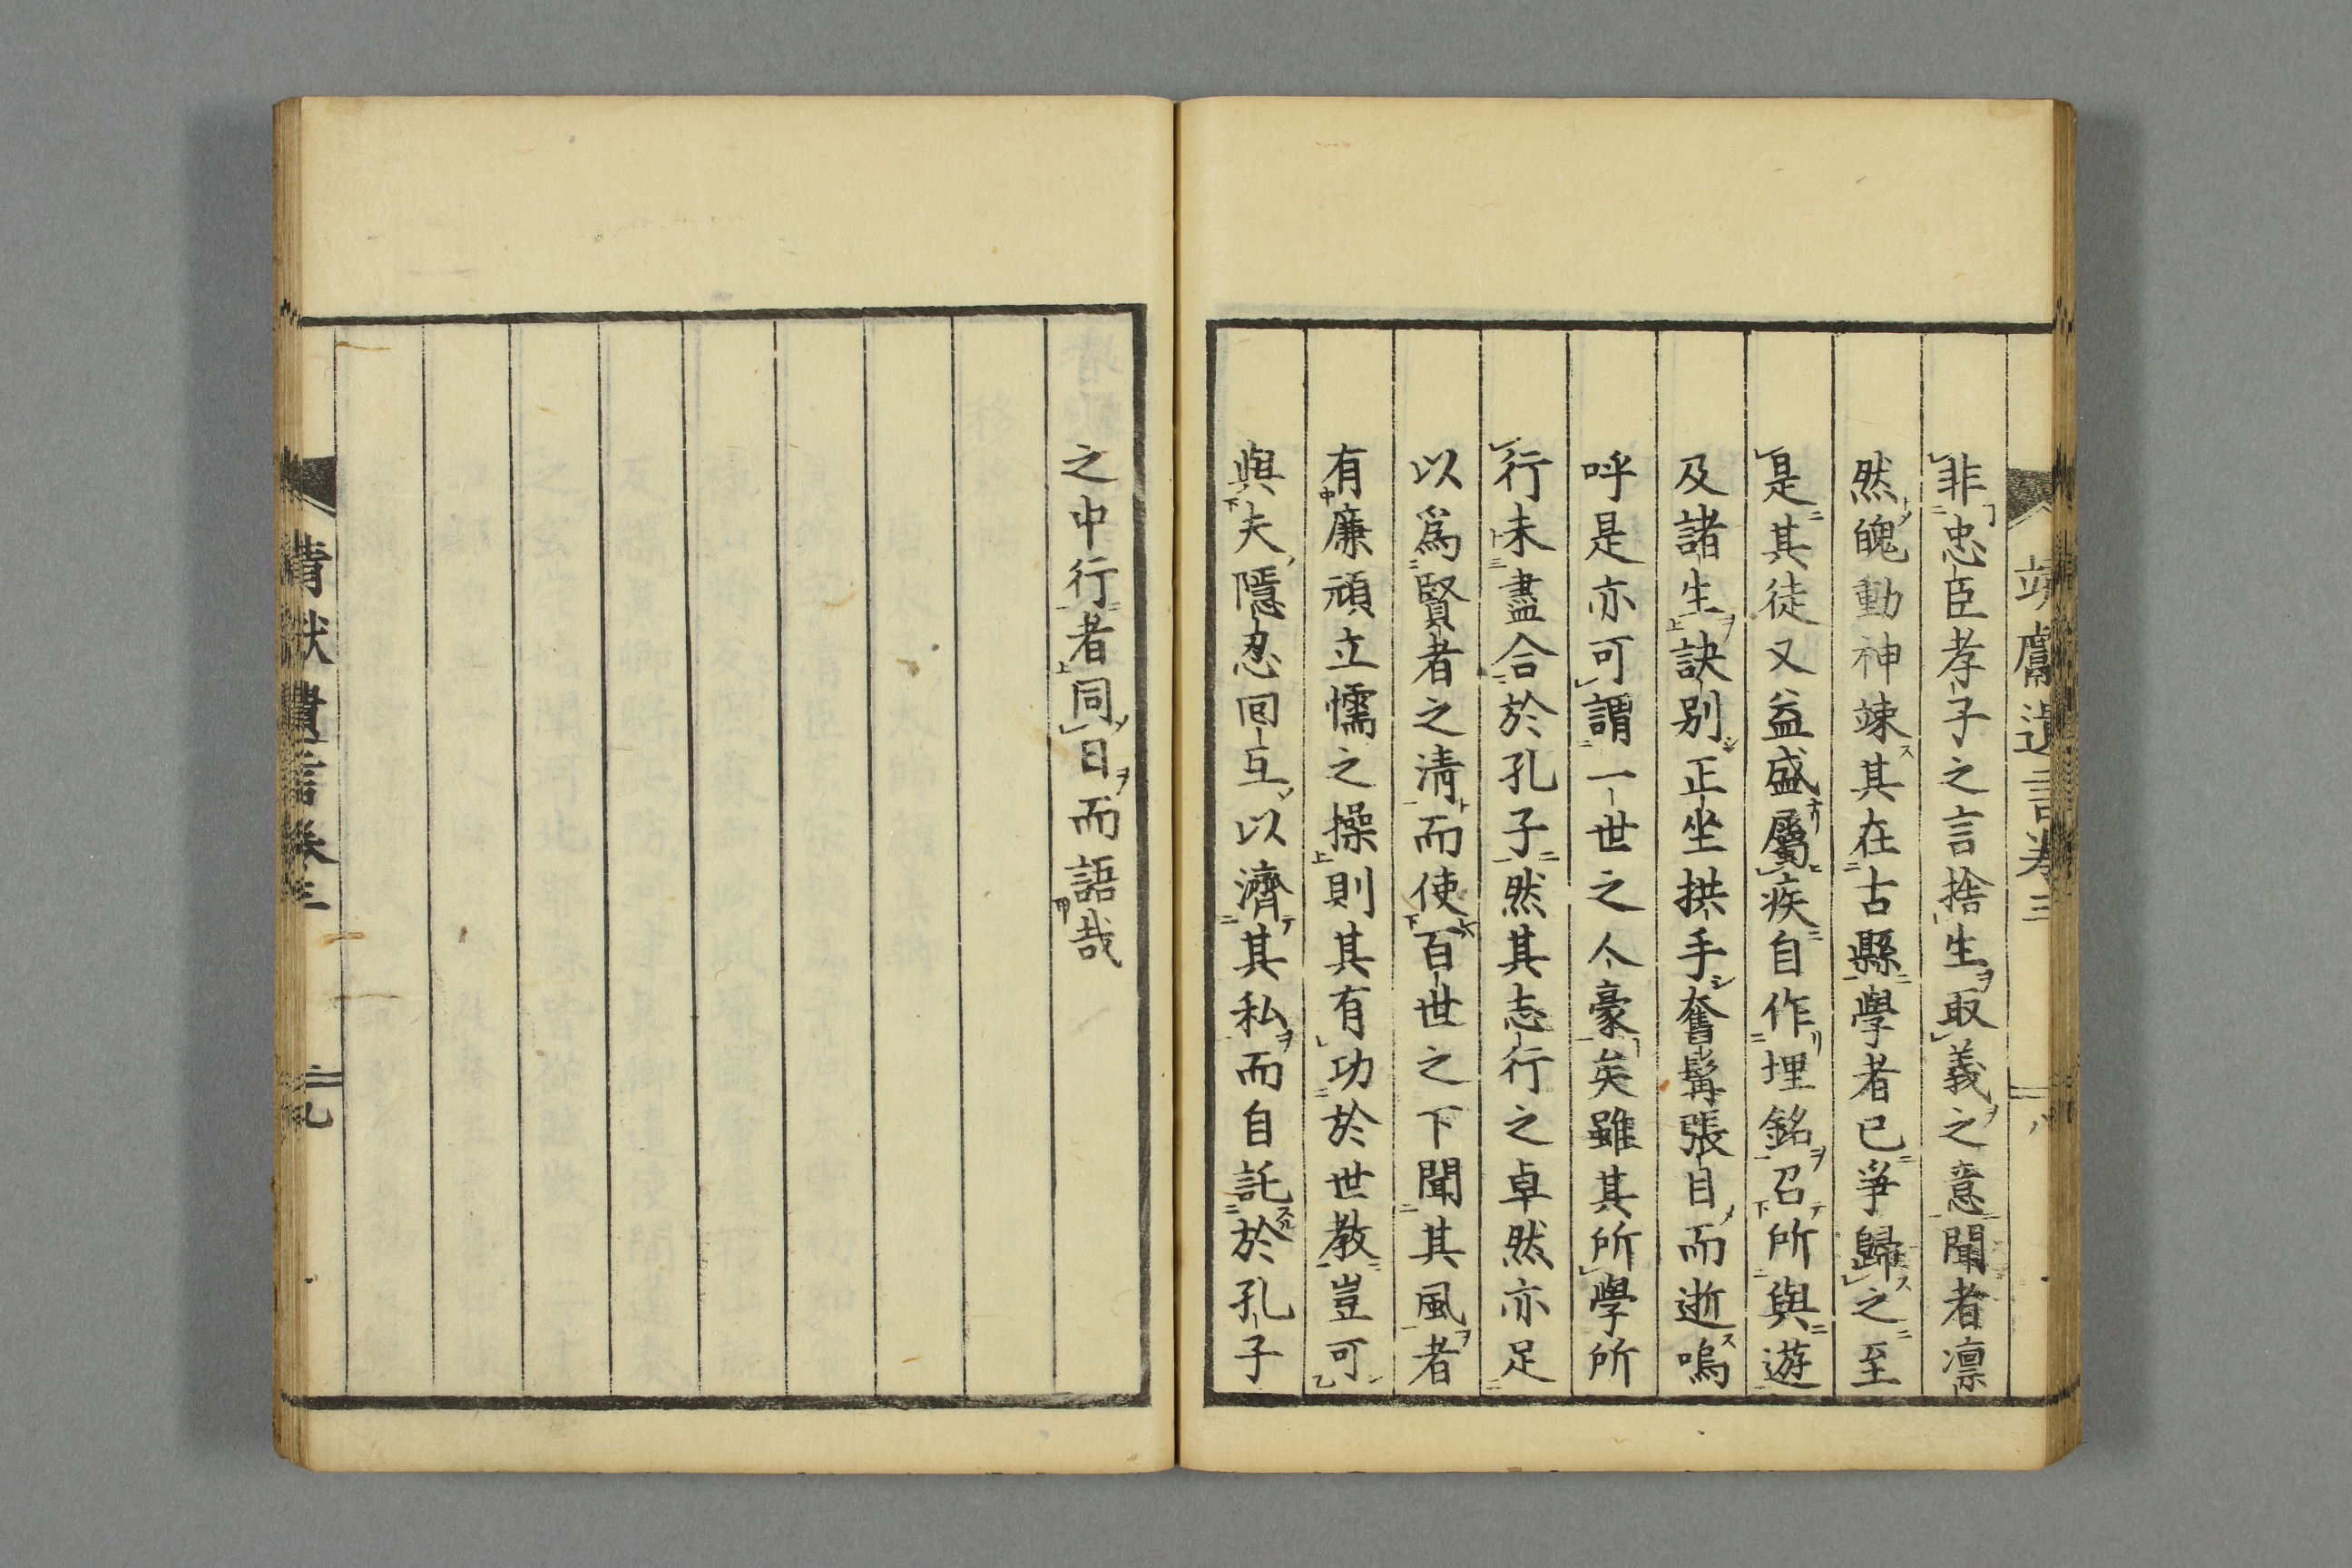 靖獻遺言卷三
八
非忠臣孝子之言捨生取義之意聞者凛
然魄動神竦其在古縣學者已爭歸之至
是其徒又益盛屬疾自作埋銘召所與遊
及諸生訣別正坐拱手奮髯張目而逝嗚
呼是亦可謂一世之人豪矣雖其所學所
行未盡合於孔子然其志行之卓然亦足
以爲賢者之清而使百世之下聞其風者
有廉頑立懦之操則其有功於世教豈可
與夫隱忍回互以濟其私而自託於孔子
之中行者同日而語哉
靖獻遺言卷三
九